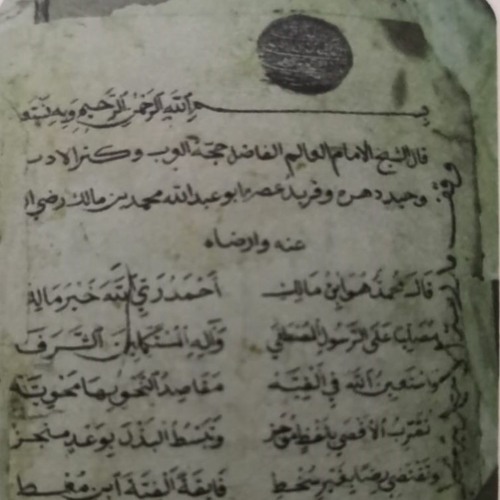 بسم الله الرحمن الرحيم وبه نستع
قال الشيخ الامام العالم الفاضل حجة العرب وكنز الادب
وحيد دهره وفريد عصره ابو عبد الله محمد بن مالك رضي ا
عنه وارضاه
قال محمد هو ابن مالك احمد ربي الله خير مالك
مصليا على الرسول المصطفى وآله المستكملين الشرفا
واستعين الله في الفيه مقاصد النحو بها محويه
تقرب الاقصى بلفظ موجز وتبسط البذل بوعد منجز
وتقتضي رضا بغير سخط فايقة الفية ابن معط